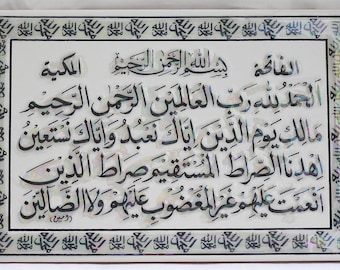 بسم الله الرحمن الرحيم
الفاتحة المكية
الحمد لله رب العالمين الرحمن الرحيم
مالك يوم الدين إياك نعبد وإياك نستعين
اهدنا الصراط المستقيم صراط الذين
أنعمت عليهم غير المغضوب عليهم ولا الضالين